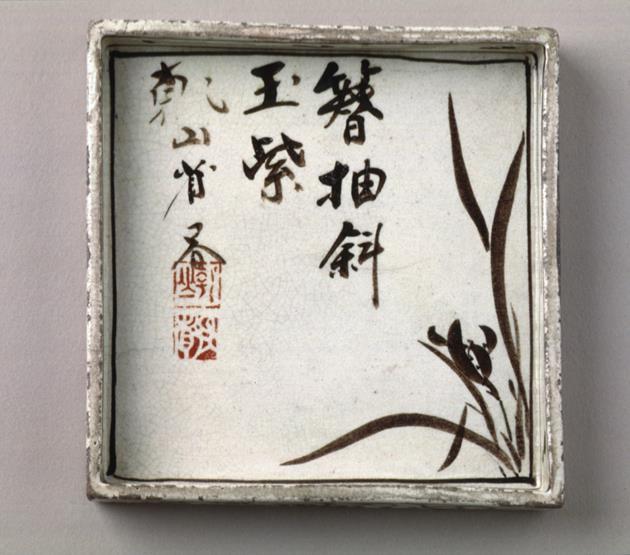 簪抽斜
玉紫
乾山省書